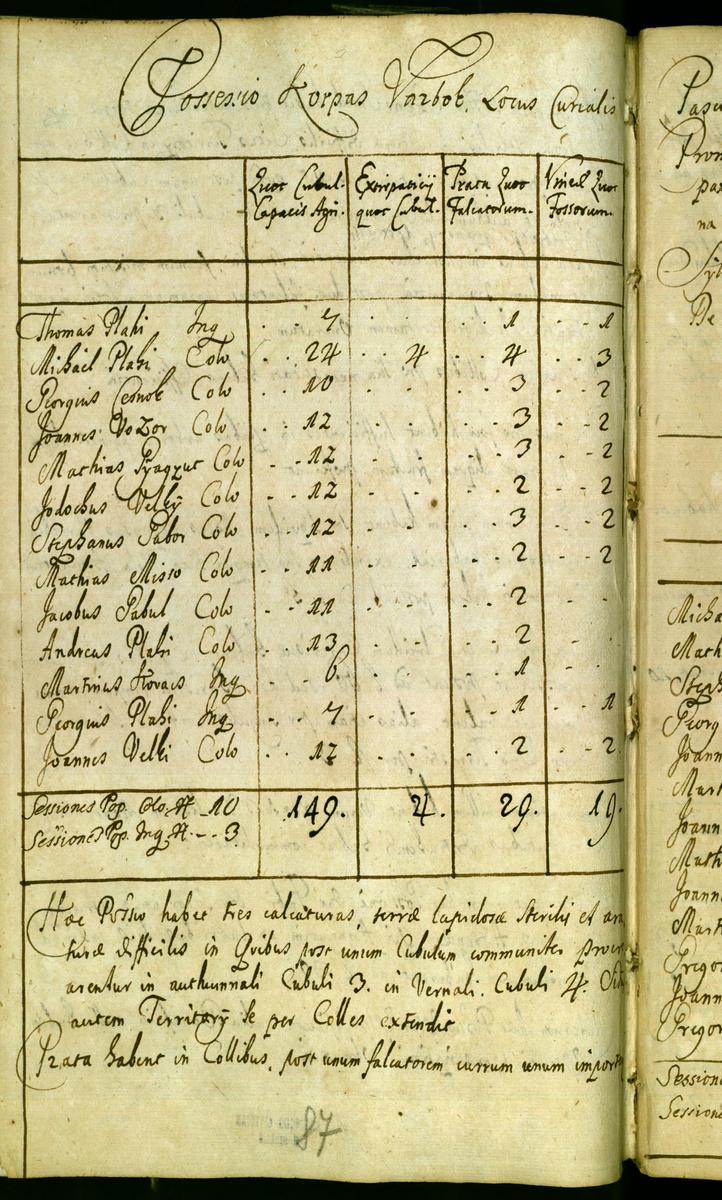 Possessio Korpas Varbok. Locus Curialis
Quot Cubul. Capacis Agri. Exirpaticij quot Cubul. Prata Quot Falcatorum. Vineæ Quot Fossorum.
Thomas Plahi Inq . 7 . . . . 1 . . 1
Michael Plahi Colo . . 24 . . 4 . . 4 . . 3
Georgius Colo . . 10 . . . . 3 . . 2
Joannes Vozor Colo . . 12 . . . . 3 . . 2
Mathias Colo . . 12 . . . . 3 . . 2
Jodochus Velky Colo . . 12 . . . . 2 . . 2
Stephanus Gabor Colo . . 12 . . . . 3 . . 2
Mathias Misso Colo . . 11 . . . . 2 . . 2
Jacobus Colo . . 11 . . . . 2 . .
Andreas Plahi Colo . . 13 . . . . 2 . .
Martinus Kovacs Inq . . 6 . . . . 1 . .
Georgius Plahi Inq . . 7 . . . . 1 . . 1
Joannes Velki Colo . . 12 . . . . 2 . . 2
Sessiones Pop. Colo. H. 10 149. 4. 29. 19.
Sessiones Pop. Inq. H. - - 3.
Hæc Possio habet tres calcaturas, terræ lapidosæ sterilis et ara
turæ difficilis in Quibus post unum Cubulum communiter
arentur in authumnali Cubuli 3. in Vernali. Cubuli 4.
autem Territory se per Colles extendit
Prata habent in Collibus, post unum falcatorem currum unum import
87
Pasc
Prom
pa
na
Sy
De
Micha
Math
Steph
Georg
Joann
Mart
Joann
Math
Joann
Mart
Gregor
Joann
Gregor
Session
Session